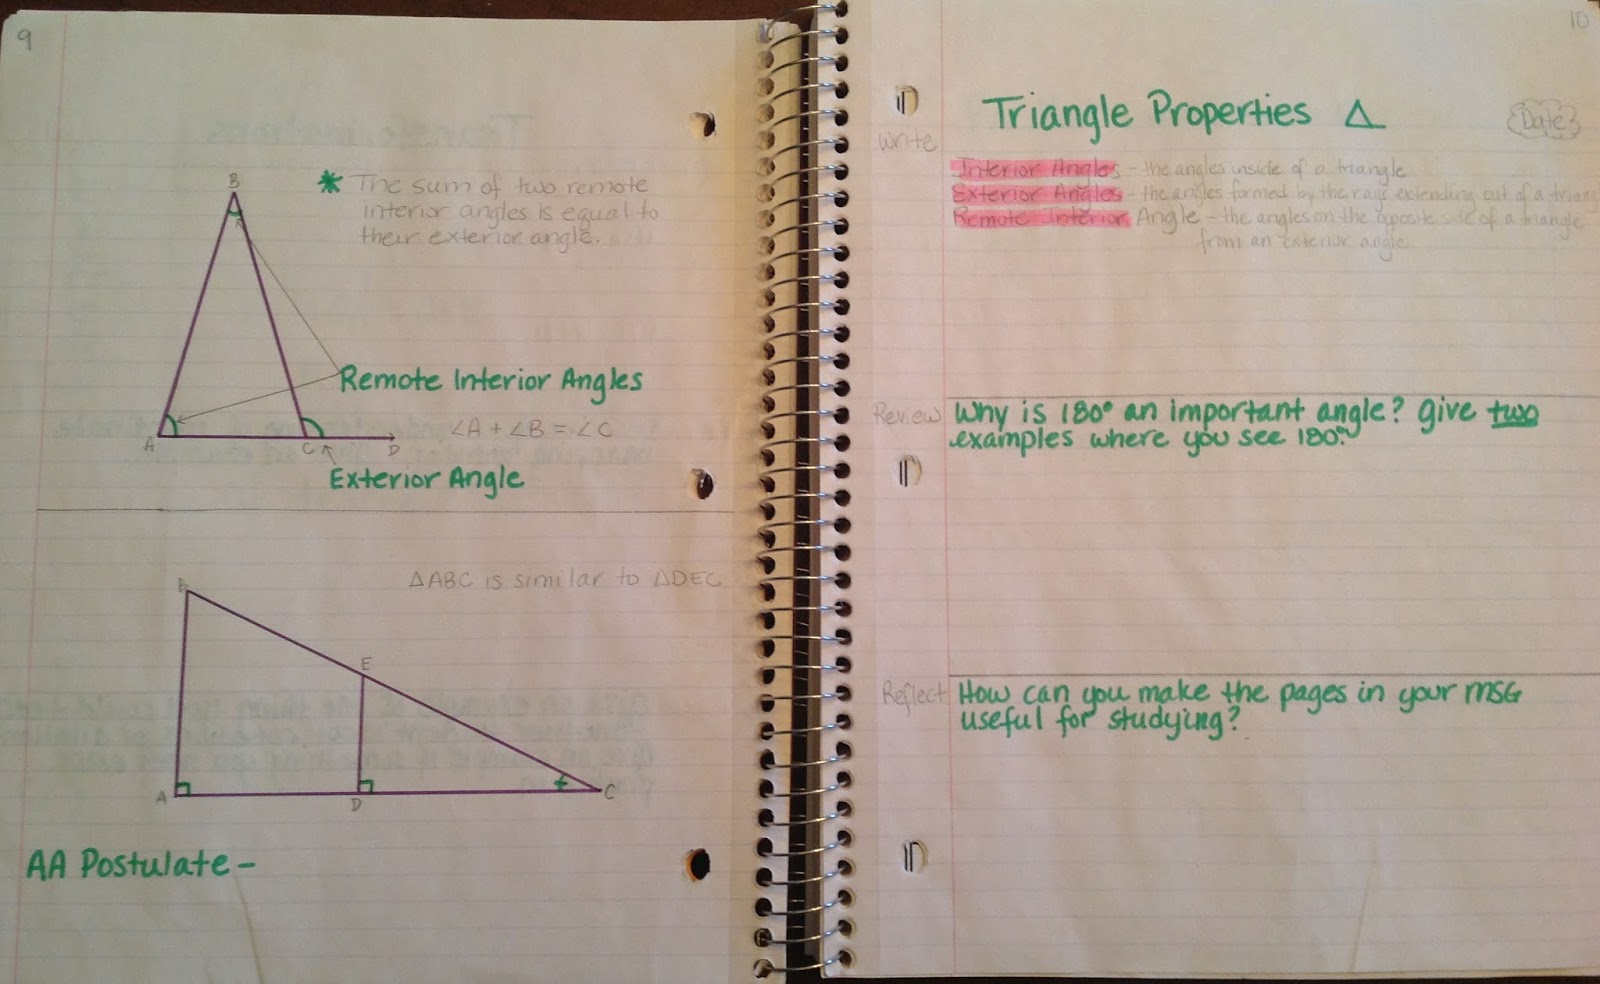 9
B
* The sum of two remote
interior angles is equal to
their exterior angle.
Remote Interior Angles
∠A + ∠B = ∠C
A
C
D
Exterior Angle
△ABC is similar to △DEC
B
E
A
D
C
AA Postulate -
10
Triangle Properties △
Date
Write
Interior Angles - the angles inside of a triangle
Exterior Angles - the angles formed by the rays extending out of a triang
Remote Interior Angle - the angles on the opposite side of a triangle
from an exterior angle
Review
Why is 180° an important angle? Give two
examples where you see 180°.
Reflect
How can you make the pages in your MSG
useful for studying?